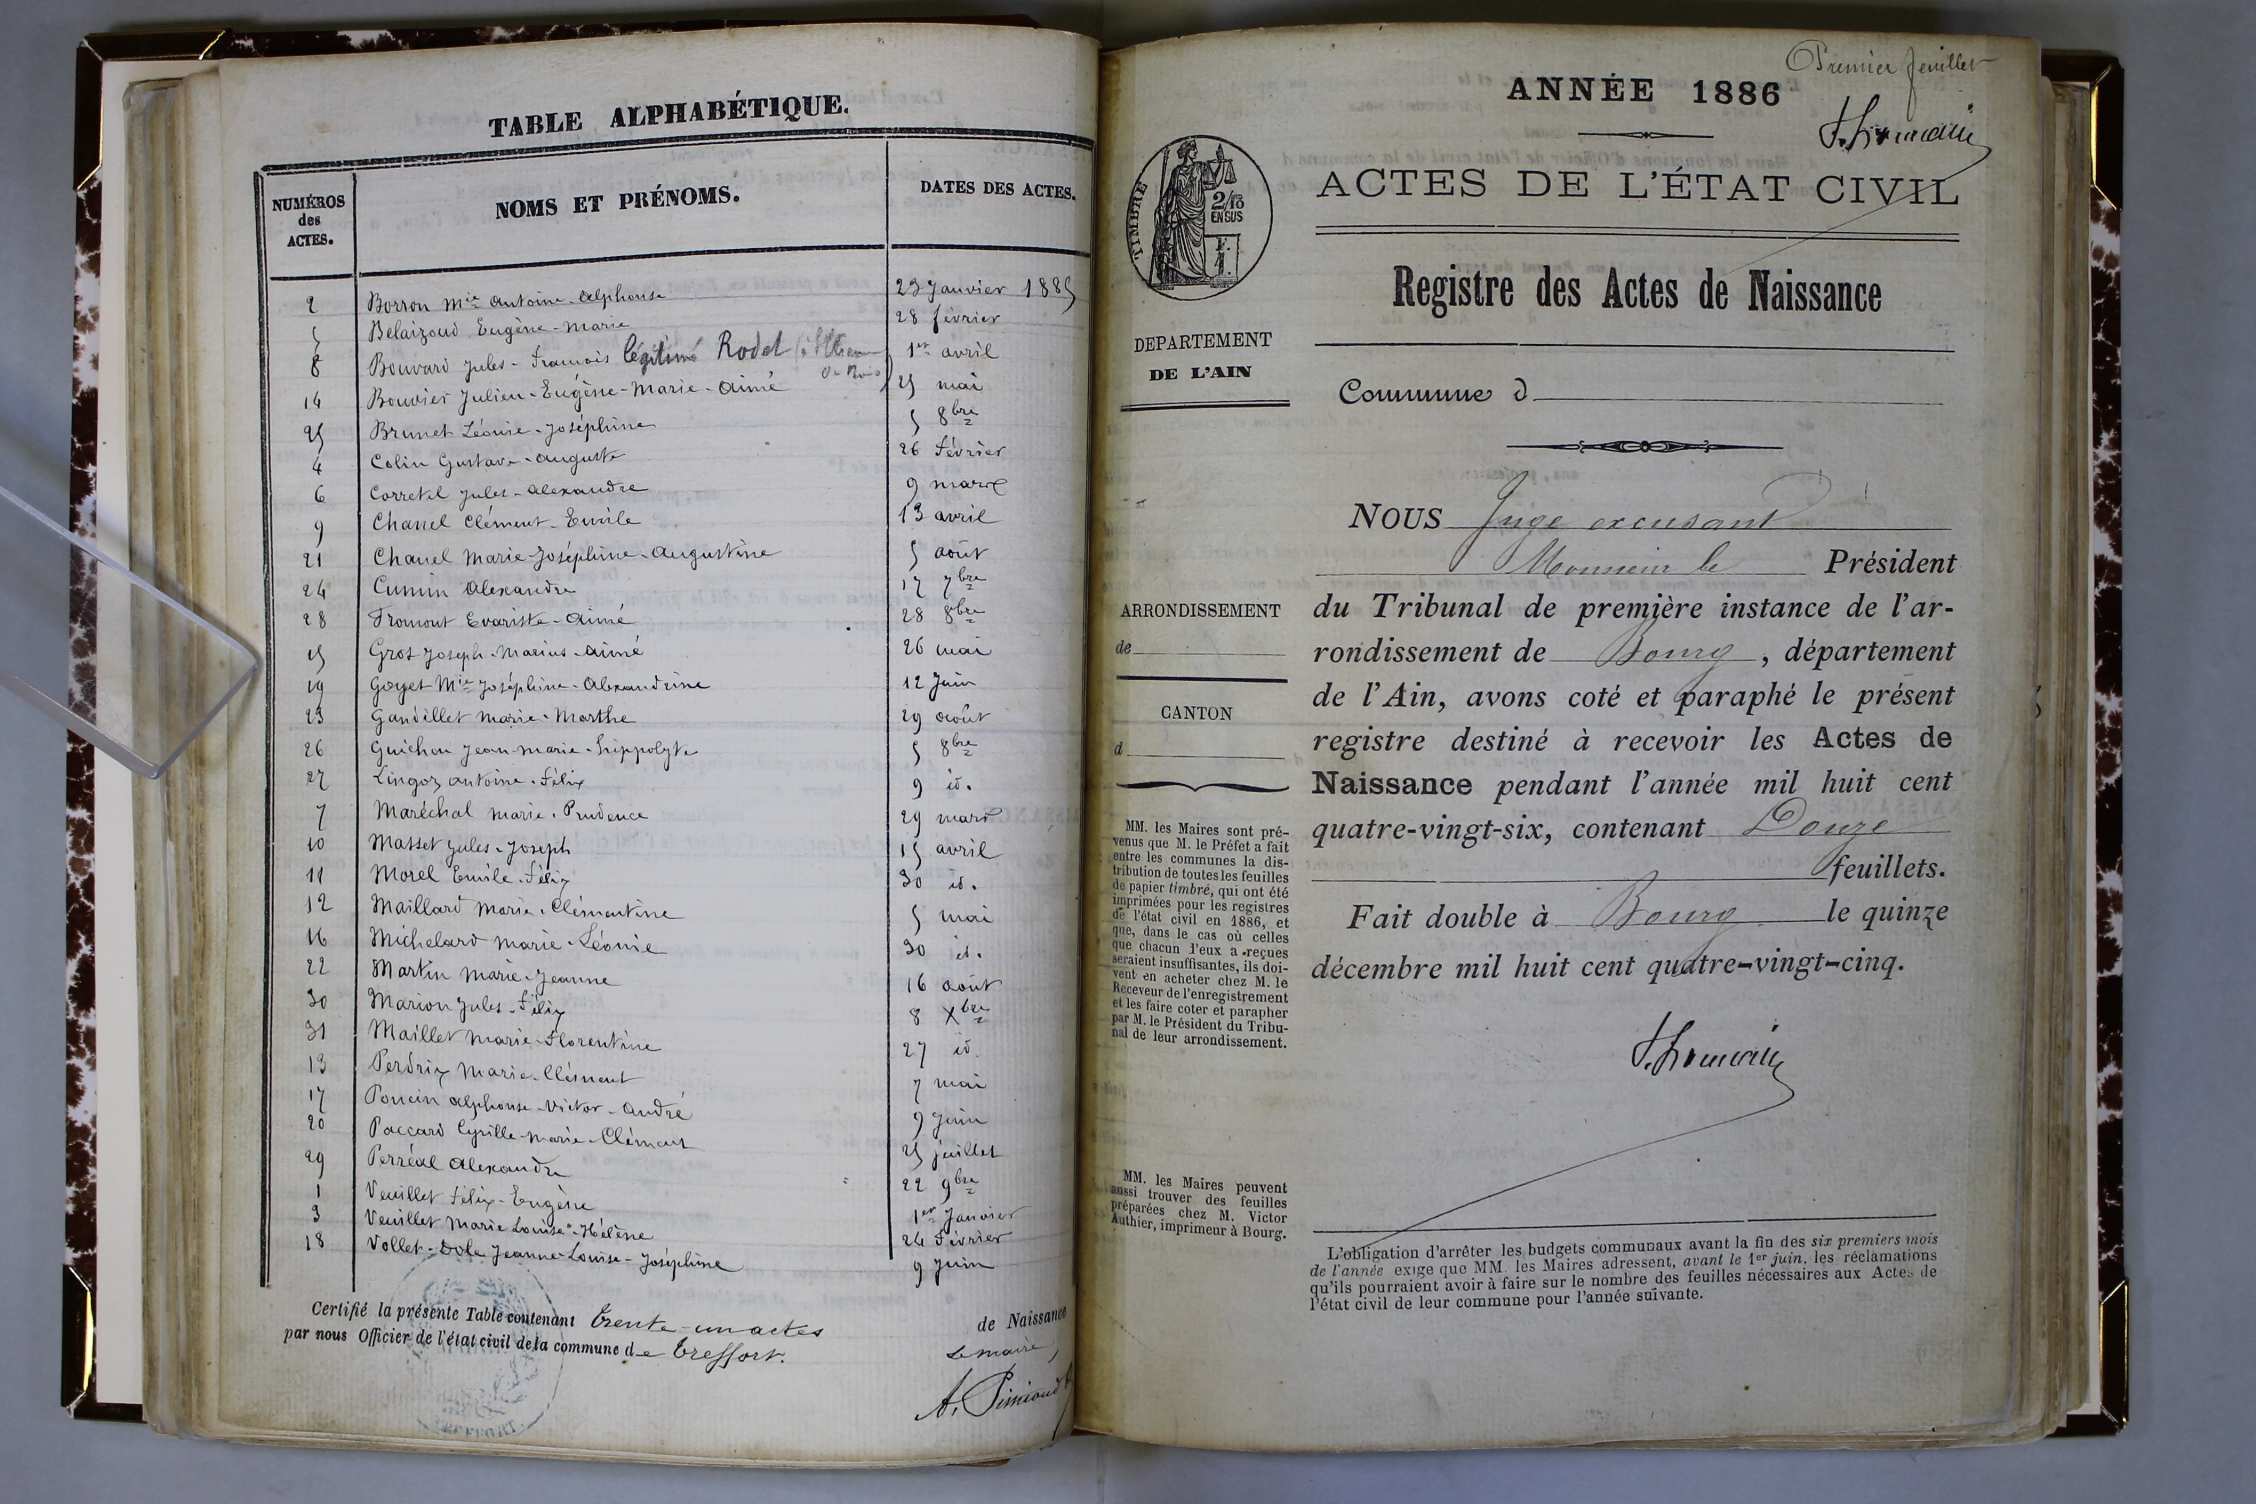 TABLE ALPHABÉTIQUE.
NUMÉROS des ACTES. NOMS ET PRÉNOMS. DATES DES ACTES.
2 Borron Mie Antoine-Alphonse 23 Janvier 1885
5 Belaizoud Eugène-Marie 28 février
8 Bouvard Jules-François légitimé Rodet 1er avril
14 Bouvier Julien-Eugène-Marie-Aimé 25 mai
25 Brunet Léonie-Joséphine 5 8bre
4 Colin Gustave-Auguste 26 Février
6 Corretel Jules-Alexandre 9 mars
9 Chanel Clément-Emile 13 avril
21 Chanel Marie-Joséphine-Augustine 5 août
24 Cumin Alexandre 17 7bre
28 Fromont Evariste-Aimé 28 8bre
15 Gros Joseph-Marius-Aimé 26 mai
19 Goyet Mie Joséphine-Alexandrine 12 Juin
23 Gandillet Marie-Marthe 29 août
26 Guichon Jean-Marie-Hippolyte 5 8bre
27 Lingoz Antoine-Félix 9 id.
7 Maréchal Marie-Prudence 29 mars
10 Masset Jules-Joseph 15 avril
11 Morel Emile-Félix 30 id.
12 Maillard Marie-Clémentine 5 mai
16 Michelard Marie-Léonie 30 id.
22 Martin Marie-Jeanne 16 août
30 Marion Jules-Félix 8 Xbre
31 Maillet Marie-Florentine 27 id.
13 Perdrix Marie-Clément 7 mai
17 Poncin Alphonse-Victor-André 9 Juin
20 Paccard Cyrille-Marie-Clément 25 juillet
29 Perréal Alexandre 22 9bre
1 Veuillet Félix-Eugène 1er Janvier
3 Veuillet Marie Louise-Hélène 24 Février
18 Vollet-Dole Jeanne-Louise-Joséphine 9 Juin
Certifié la présente Table contenant trente-un actes de Naissance
par nous Officier de l'état civil de la commune de Treffort.
Le maire,
Premier feuillet
ANNÉE 1886
ACTES DE L'ÉTAT CIVIL
TIMBRE
2/10
EN SUS
Registre des Actes de Naissance
DEPARTEMENT
DE L'AIN
Commune d
NOUS Juge excusant
Monsieur le Président
du Tribunal de première instance de l'ar-
rondissement de Bourg, département
de l'Ain, avons coté et paraphé le présent
registre destiné à recevoir les Actes de
Naissance pendant l'année mil huit cent
quatre-vingt-six, contenant Douze
feuillets.
Fait double à Bourg le quinze
décembre mil huit cent quatre-vingt-cinq.
ARRONDISSEMENT
de
CANTON
d
MM. les Maires sont pré-
venus que M. le Préfet a fait
entre les communes la dis-
tribution de toutes les feuilles
de papier timbré, qui ont été
imprimées pour les registres
de l'état civil en 1886, et
que, dans le cas où celles
que chacun d'eux a reçues
seraient insuffisantes, ils doi-
vent en acheter chez M. le
Receveur de l'enregistrement
et les faire coter et parapher
par M. le Président du Tribu-
nal de leur arrondissement.
MM. les Maires peuvent
aussi trouver des feuilles
préparées chez M. Victor
Authier, imprimeur à Bourg.
L'obligation d'arrêter les budgets communaux avant la fin des six premiers mois
de l'année exige que MM. les Maires adressent, avant le 1er juin, les réclamations
qu'ils pourraient avoir à faire sur le nombre des feuilles nécessaires aux Actes de
l'état civil de leur commune pour l'année suivante.